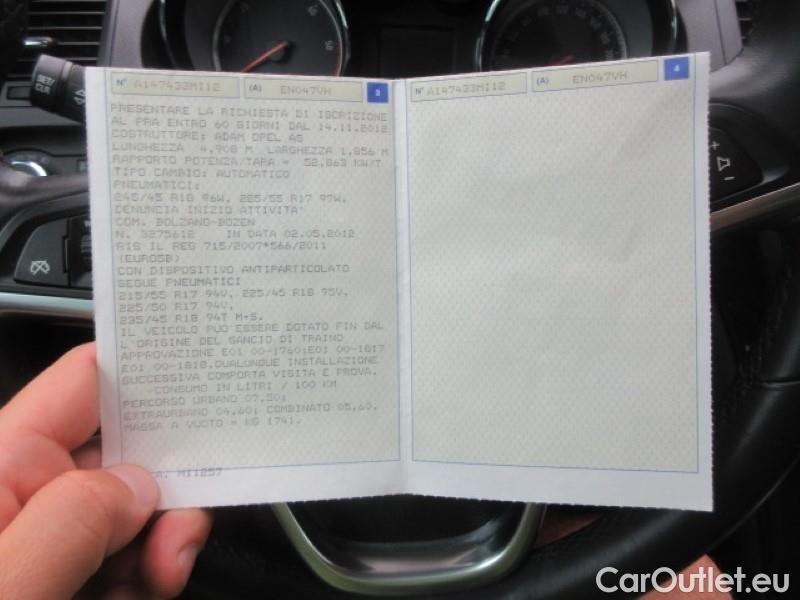 SET/
CLR
N° A147433MI12 (A) EN047VH 3
PRESENTARE LA RICHIESTA DI ISCRIZIONE
AL PRA ENTRO 60 GIORNI DAL 14.11.2012
COSTRUTTORE: ADAM OPEL AG
LUNGHEZZA 4,908 M LARGHEZZA 1,856 M
RAPPORTO POTENZA/TARA = 52,863 KW/T
TIPO CAMBIO: AUTOMATICO
PNEUMATICI:
245/45 R18 96W, 225/55 R17 97W,
DENUNCIA INIZIO ATTIVITA'
COM. BOLZANO-BOZEN
N. 3275612 IN DATA 02.05.2012
RIS IL REG 715/2007*566/2011
(EURO5B)
CON DISPOSITIVO ANTIPARTICOLATO
SEGUE PNEUMATICI
215/55 R17 94V, 225/45 R18 95V,
225/50 R17 94V,
235/45 R18 94T M+S.
IL VEICOLO PUO'ESSERE DOTATO FIN DAL
L'ORIGINE DEL GANCIO DI TRAINO
APPROVAZIONE E01 00-1760;E01 00-1817
E01 00-1818.QUALUNQUE INSTALLAZIONE
SUCCESSIVA COMPORTA VISITA E PROVA.
-CONSUMO IN LITRI / 100 KM
PERCORSO URBANO 07,50;
EXTRAURBANO 04,60; COMBINATO 05,60.
MASSA A VUOTO = KG 1741.
A. MI1257
N° A147433MI12 (A) EN047VH 4
CarOutlet.eu